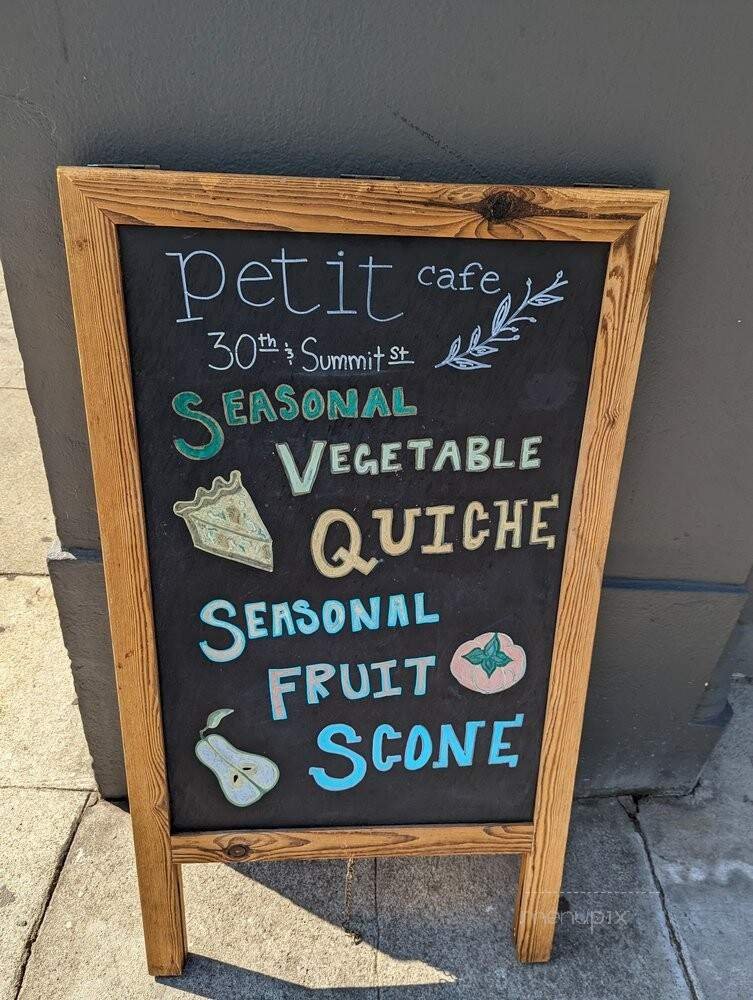 petit cafe
30th & Summit St
SEASONAL
VEGETABLE
QUICHE
SEASONAL
FRUIT
SCONE
menupix